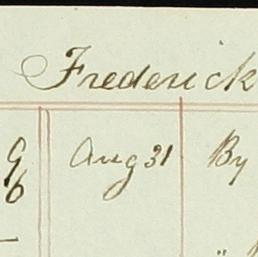 Frederick
9 Aug 31 By
6